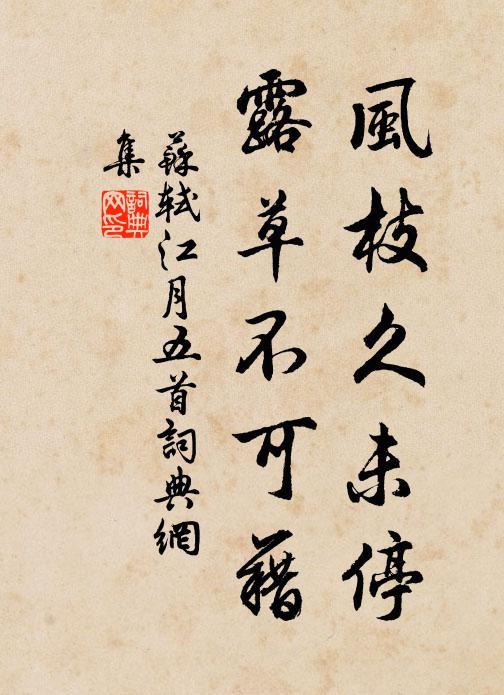 風枝久未停
露草不可藉
蘇軾江月五首詞典網
集
詞典
网印